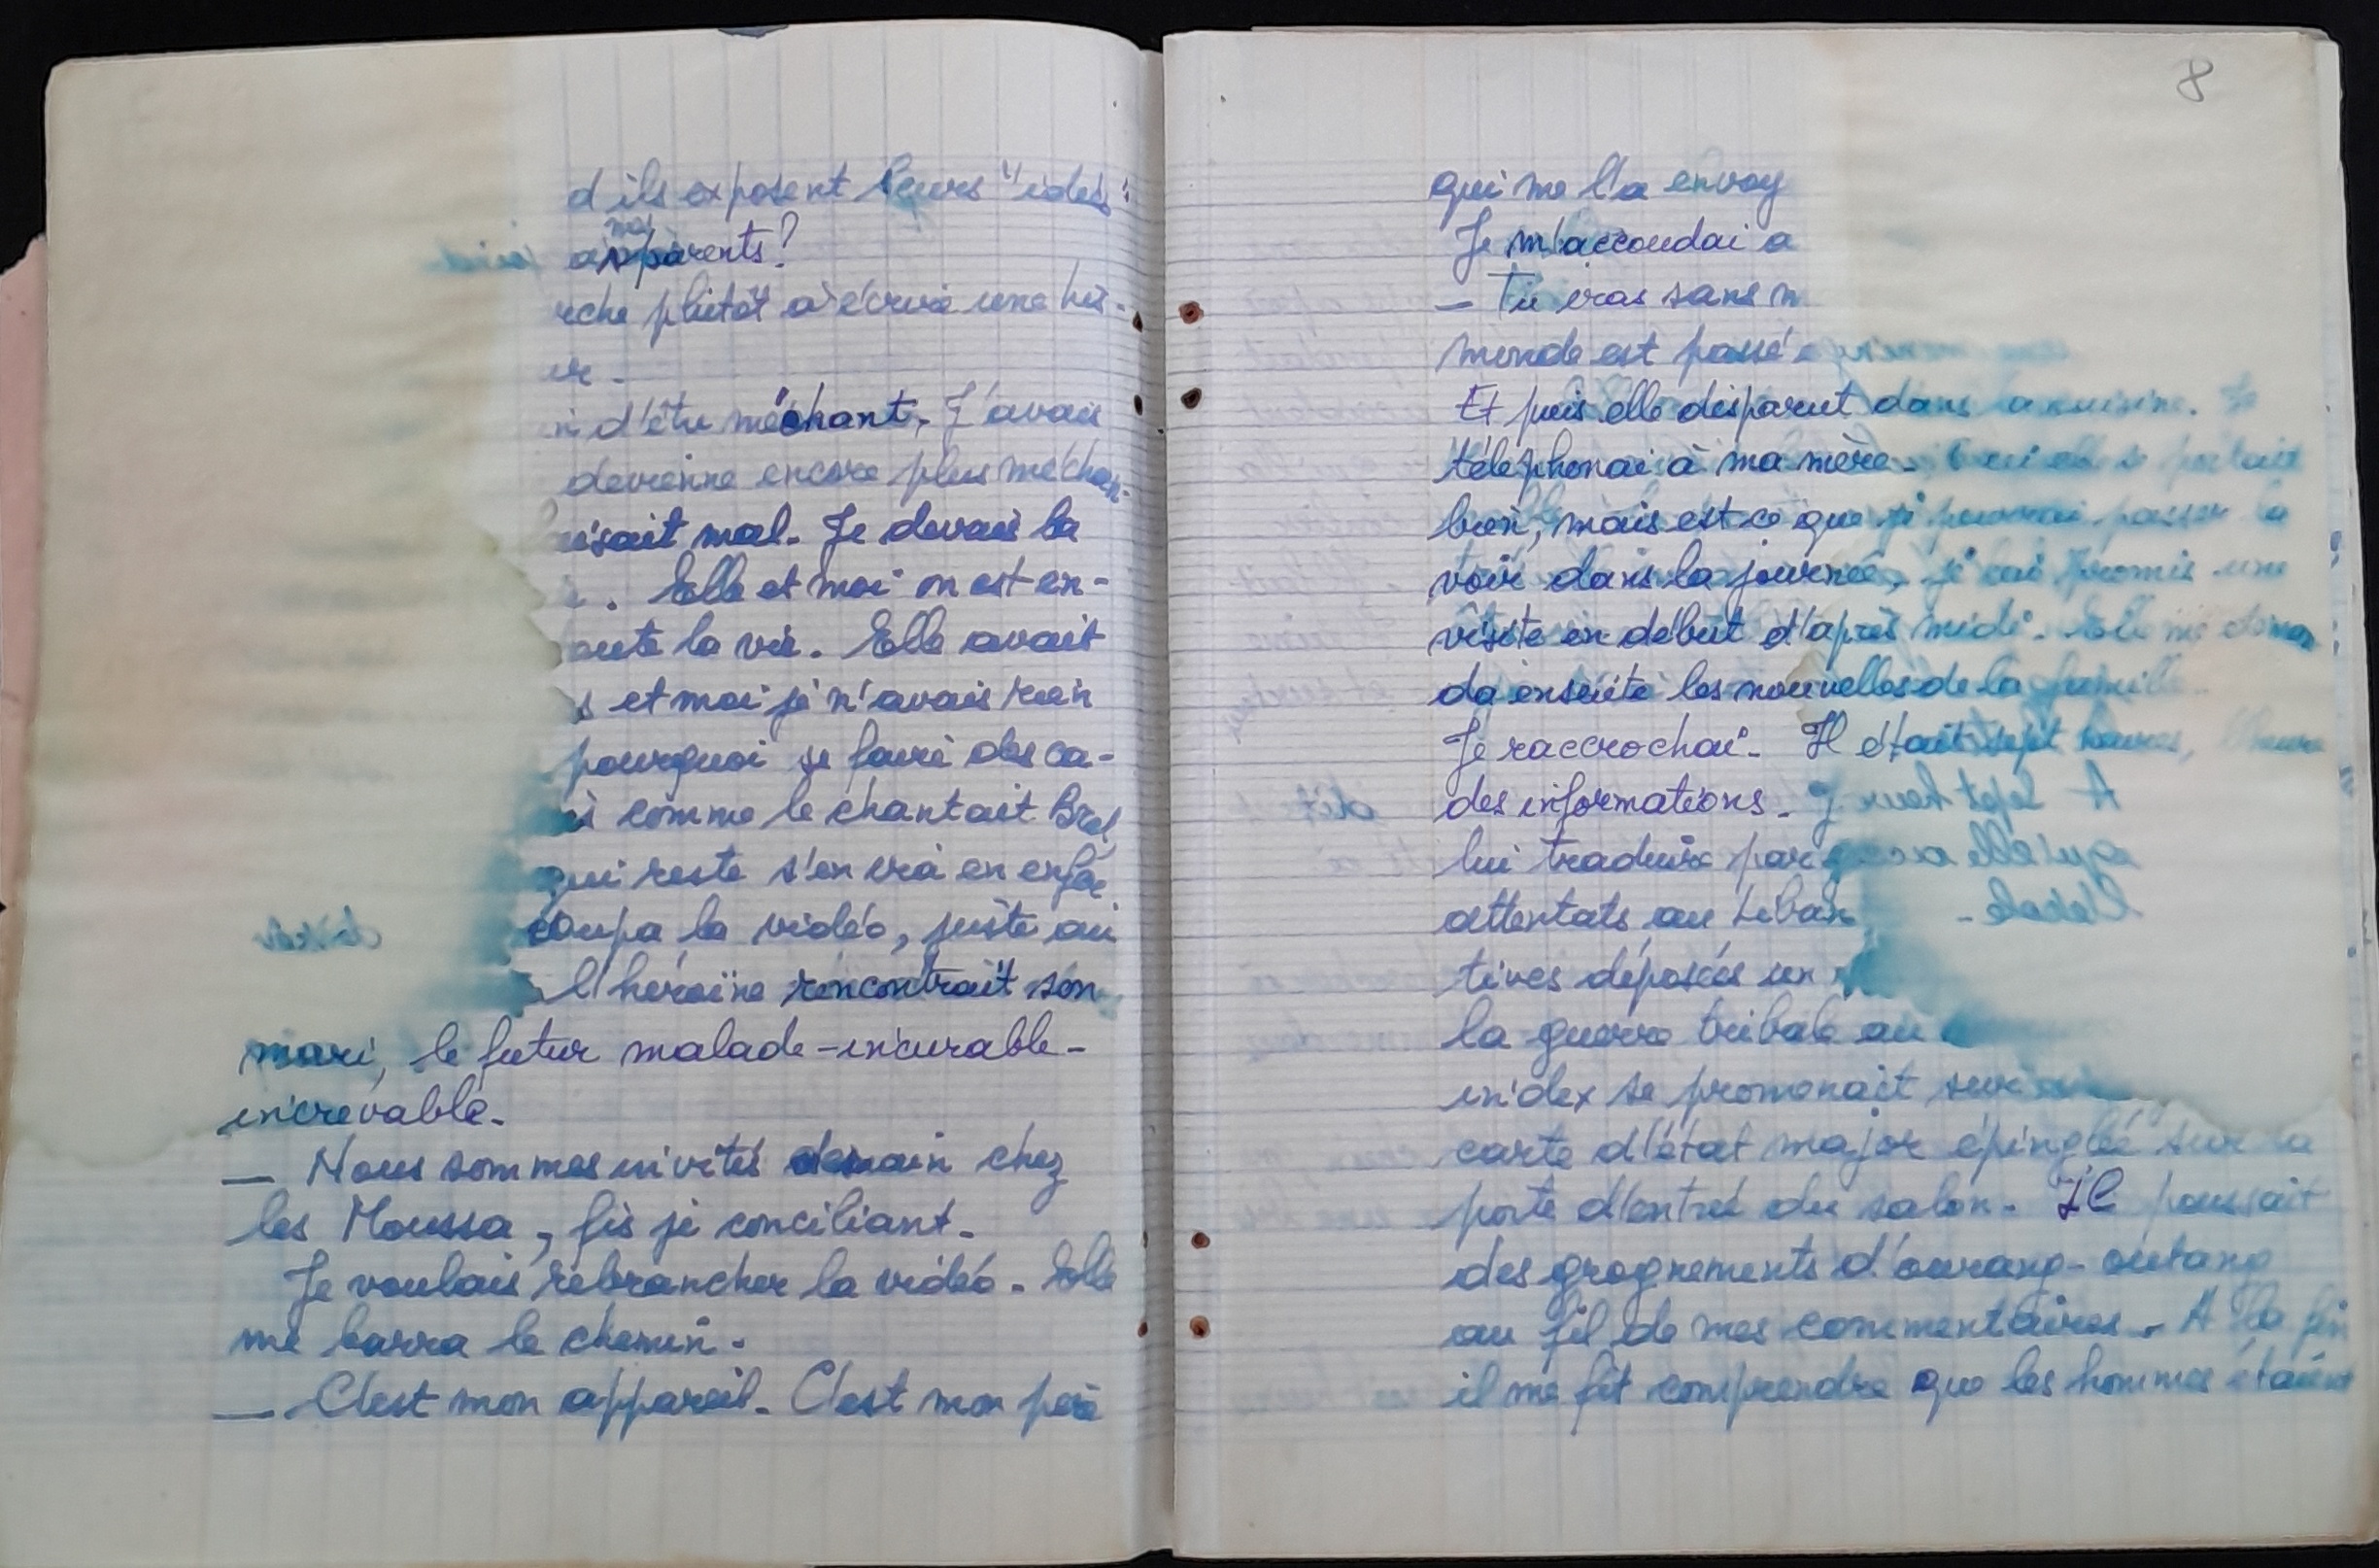 d ils exposent leurs "idées"
ma
parents?
rche plutôt à écrire une his-
re.
n d'être méchant. J'avais
devienne encore plus méchan-
aisait mal. Je devais la
. Elle et moi on est en-
oute la vie. Elle avait
s et moi je n'avais rien
pourquoi se faire des ca-
comme le chantait Brel
qui reste s'en ira en enfer
coupa la vidéo, juste au
l'héroïne rencontrait son
mari, le futur malade-incurable-
increvable.
— Nous sommes invités demain chez
les Moussa, fis je conciliant.
Je voulais rebrancher la vidéo. Elle
me barra le chemin.
— C'est mon appareil. C'est mon père
8
qui me l'a envoy
Je m'accoudai a
— Tu iras sans m
monde est passé
Et puis elle disparut dans la cuisine. Je
téléphonai à ma mère. Oui elle se portait
bien, mais est ce que je pourrai passer la
voir dans la journée, je lui promis une
visite en début d'après midi. Elle me deman
da ensuite les nouvelles de la famille.
Je raccrochai. Il était sept heures, l'heure
des informations.
lui traduire par
attentats au Liban
tives déposées un
la guerre tribale au
index se promenait sur
carte d'état major épinglée sur la
porte d'entré du salon. Il poussait
des grognements d'ourang-outang
au fil de mes commentaires. A la fin
il me fit comprendre que les hommes étaient